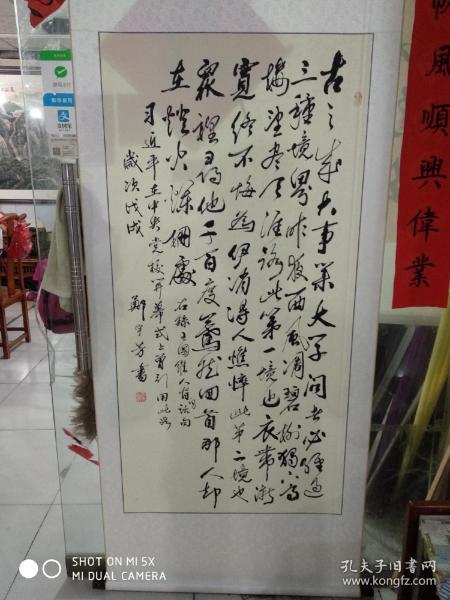 古之成大事業大學问者必經過
三種境界昨夜西風凋碧樹獨上高
樓望盡天涯路此第一境也衣带漸
寬终不悔為伊消得人憔悴此第二境也
衆裡尋他千百度驀然回首那人却
在燈火闌珊處
右錄王國维人间词话句
习近平在中央党校开幕式上曾引用此
歲次戊戌
鄭宇芳書
帆風順興偉業
SHOT ON MI 5X
MI DUAL CAMERA
孔夫子旧书网
www.kongfz.com